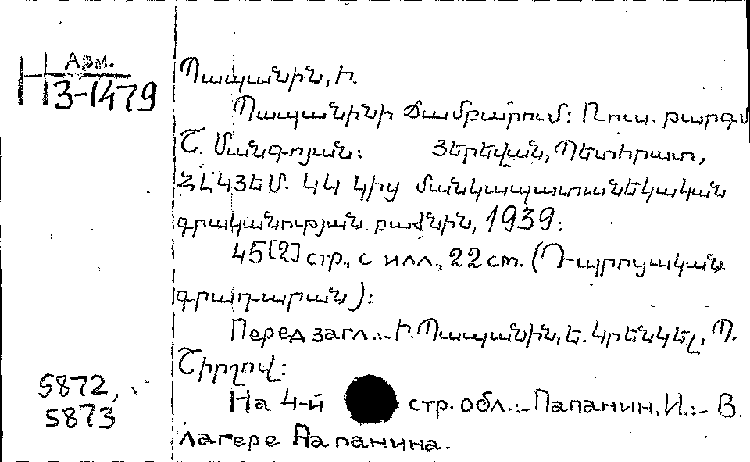 Арм.
Н 3-1479
Պապանին, Ի.
Պապանինի Ճամբարում: Ռուս. բարգմ
Շ. Մանգոյան: Յերեվան, Պետհրատ,
ՀԼԿՅԵՄ. ԿԿ կից մանկապատանեկական
գրականության բաժնին, 1939:
45[2] стр., с илл., 22 cm. (Դպրոցական
գրադարան):
Перед загл.:- Ի. Պապանին, Ե. Կրենկել, Պ.
Շիրշով:
5872,
5873
На 4-й стр. обл.:- Папанин, И.:- В
лагере Папанина.